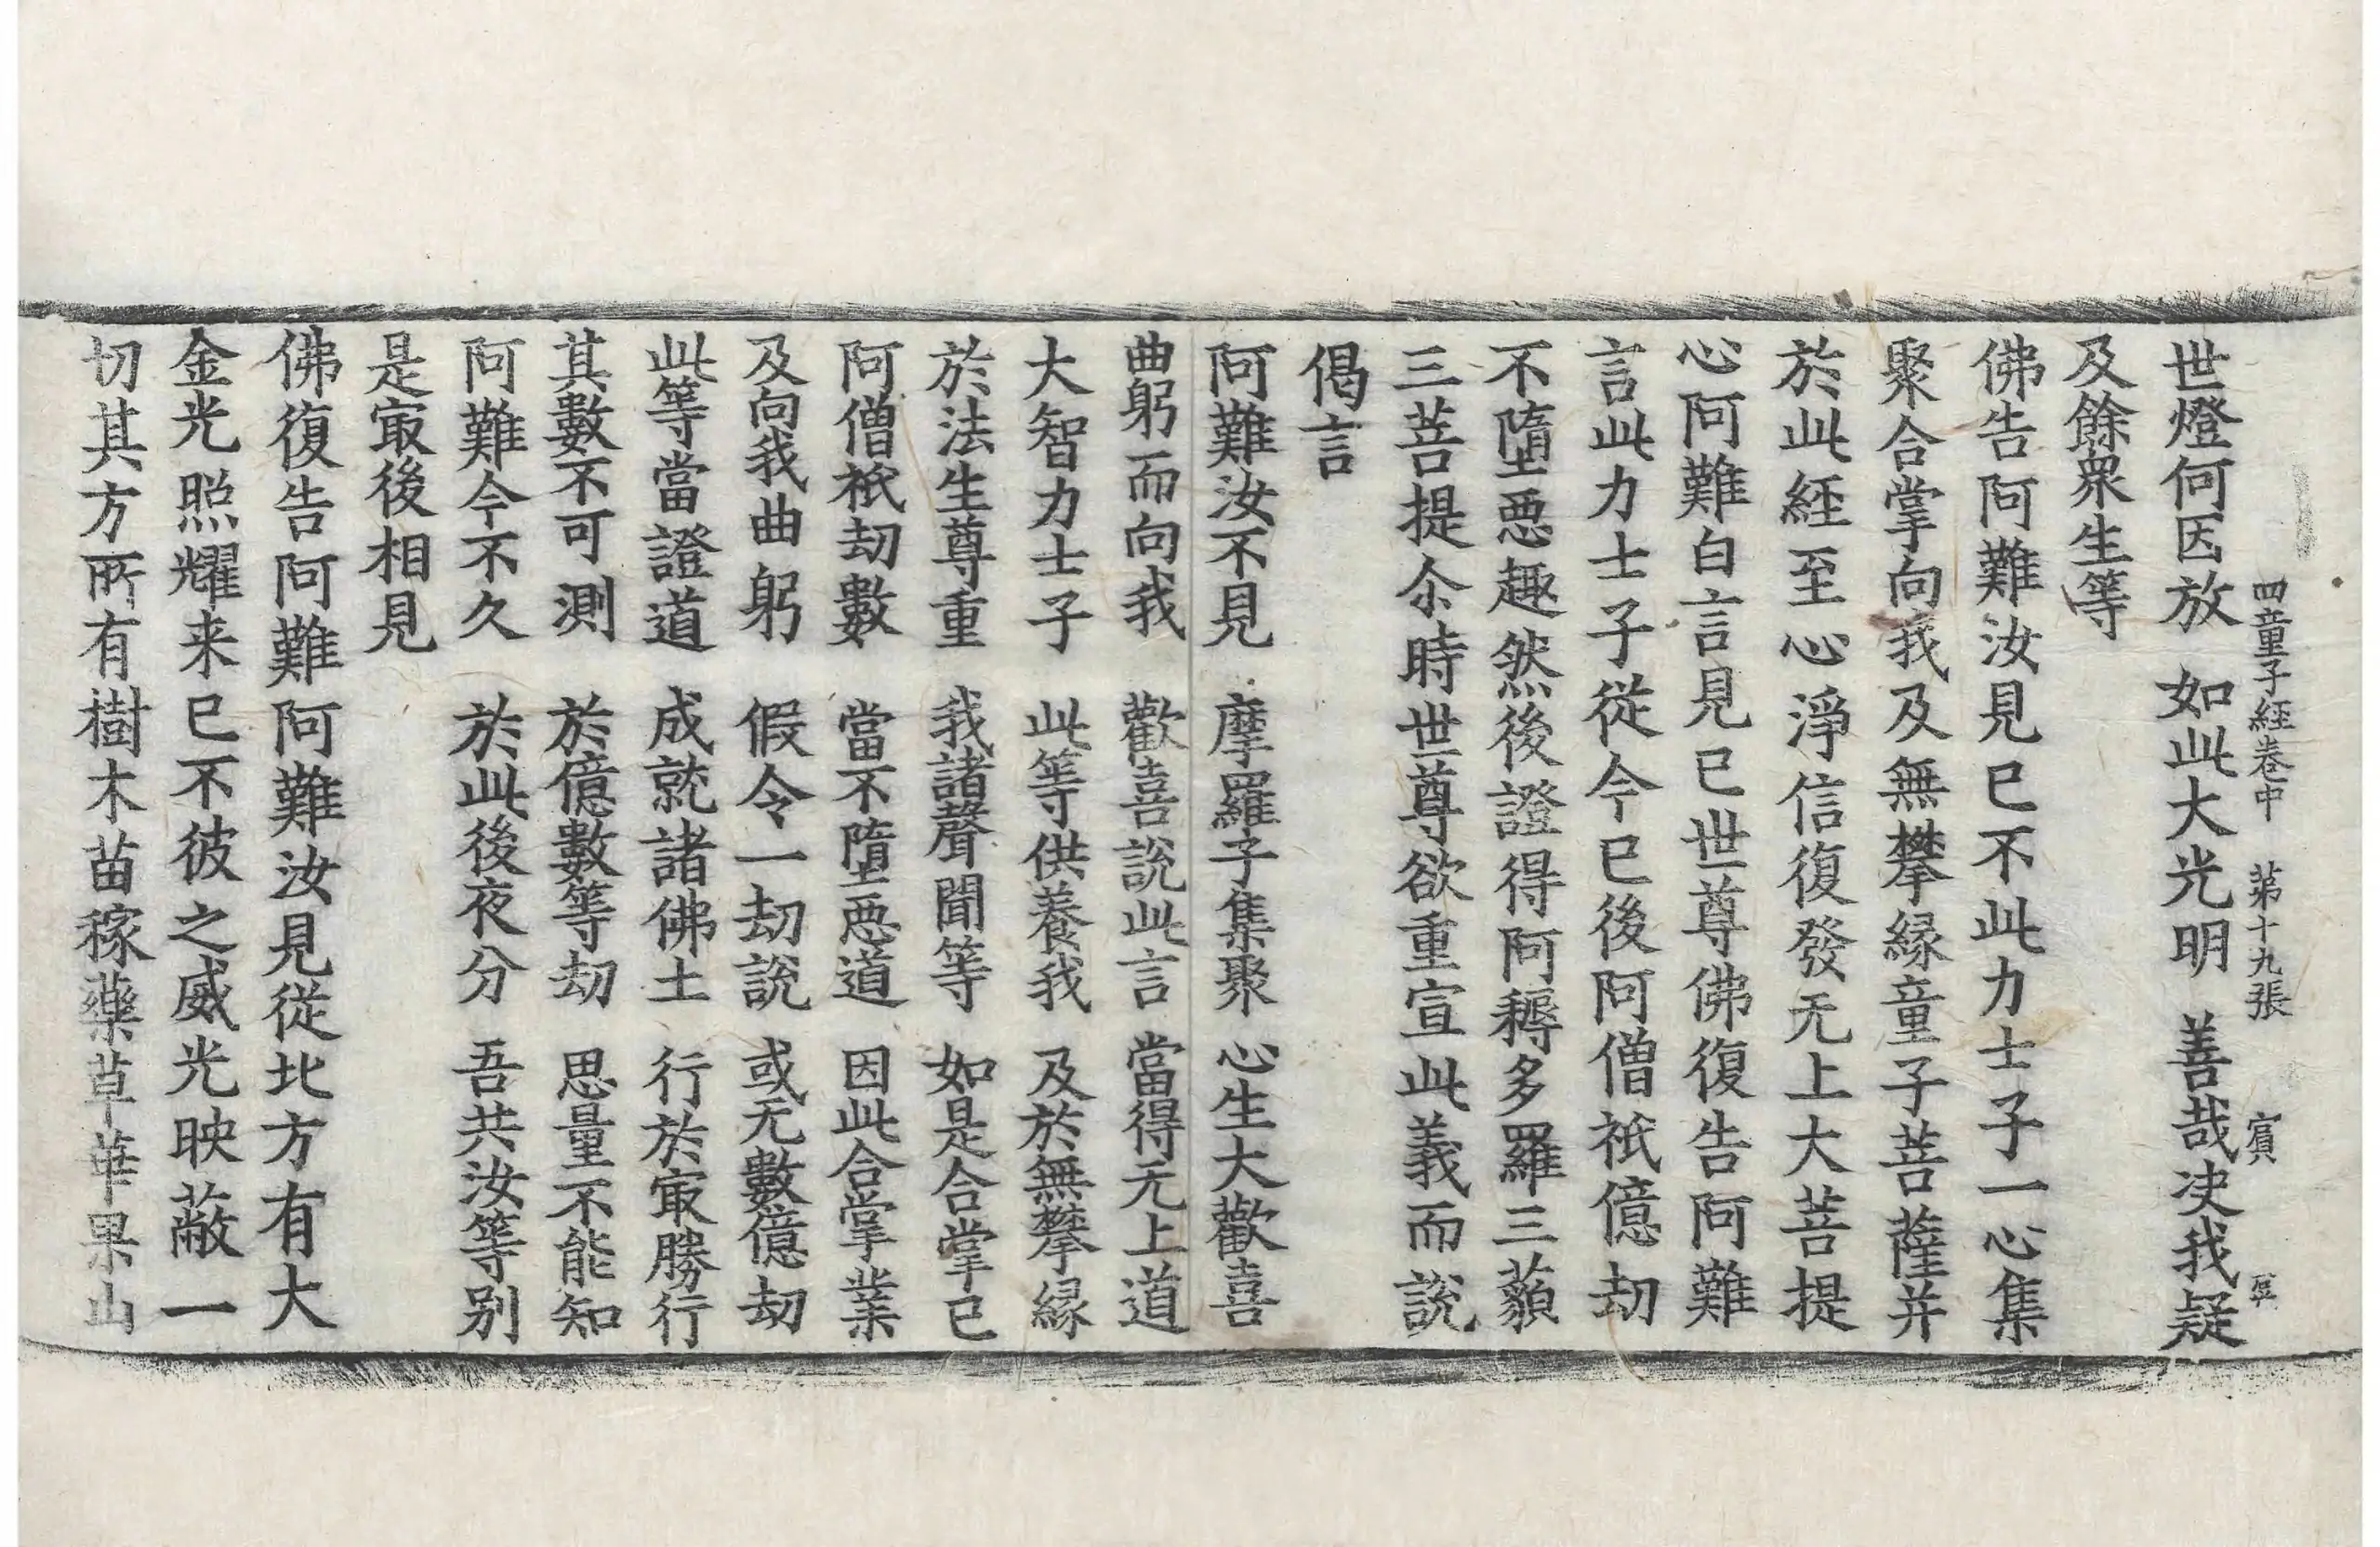 四童子經卷中 第十九張 賓
世燈何因放 如此大光明 善哉決我疑
及餘衆生等
佛告阿難汝見已不此力士子一心集
聚合掌向我及無攀緣童子菩薩并
於此經至心淨信復發无上大菩提
心阿難白言見已世尊佛復告阿難
言此力士子從今已後阿僧祇億劫
不墮惡趣然後證得阿耨多羅三藐
三菩提尒時世尊欲重宣此義而說
偈言
阿難汝不見 摩羅子集聚 心生大歡喜
曲躬而向我 歡喜說此言 當得无上道
大智力士子 此等供養我 及於無攀緣
於法生尊重 我諸聲聞等 如是合掌已
阿僧祇劫數 當不墮惡道 因此合掌業
及向我曲躬 假令一劫說 或无數億劫
此等當證道 成就諸佛土 行於㝡勝行
其數不可測 於億數等劫 思量不能知
阿難今不久 於此後夜分 吾共汝等別
是㝡後相見
佛復告阿難阿難汝見從北方有大
金光照耀来已不彼之威光映蔽一
切其方所有樹木苗稼藥草華果山